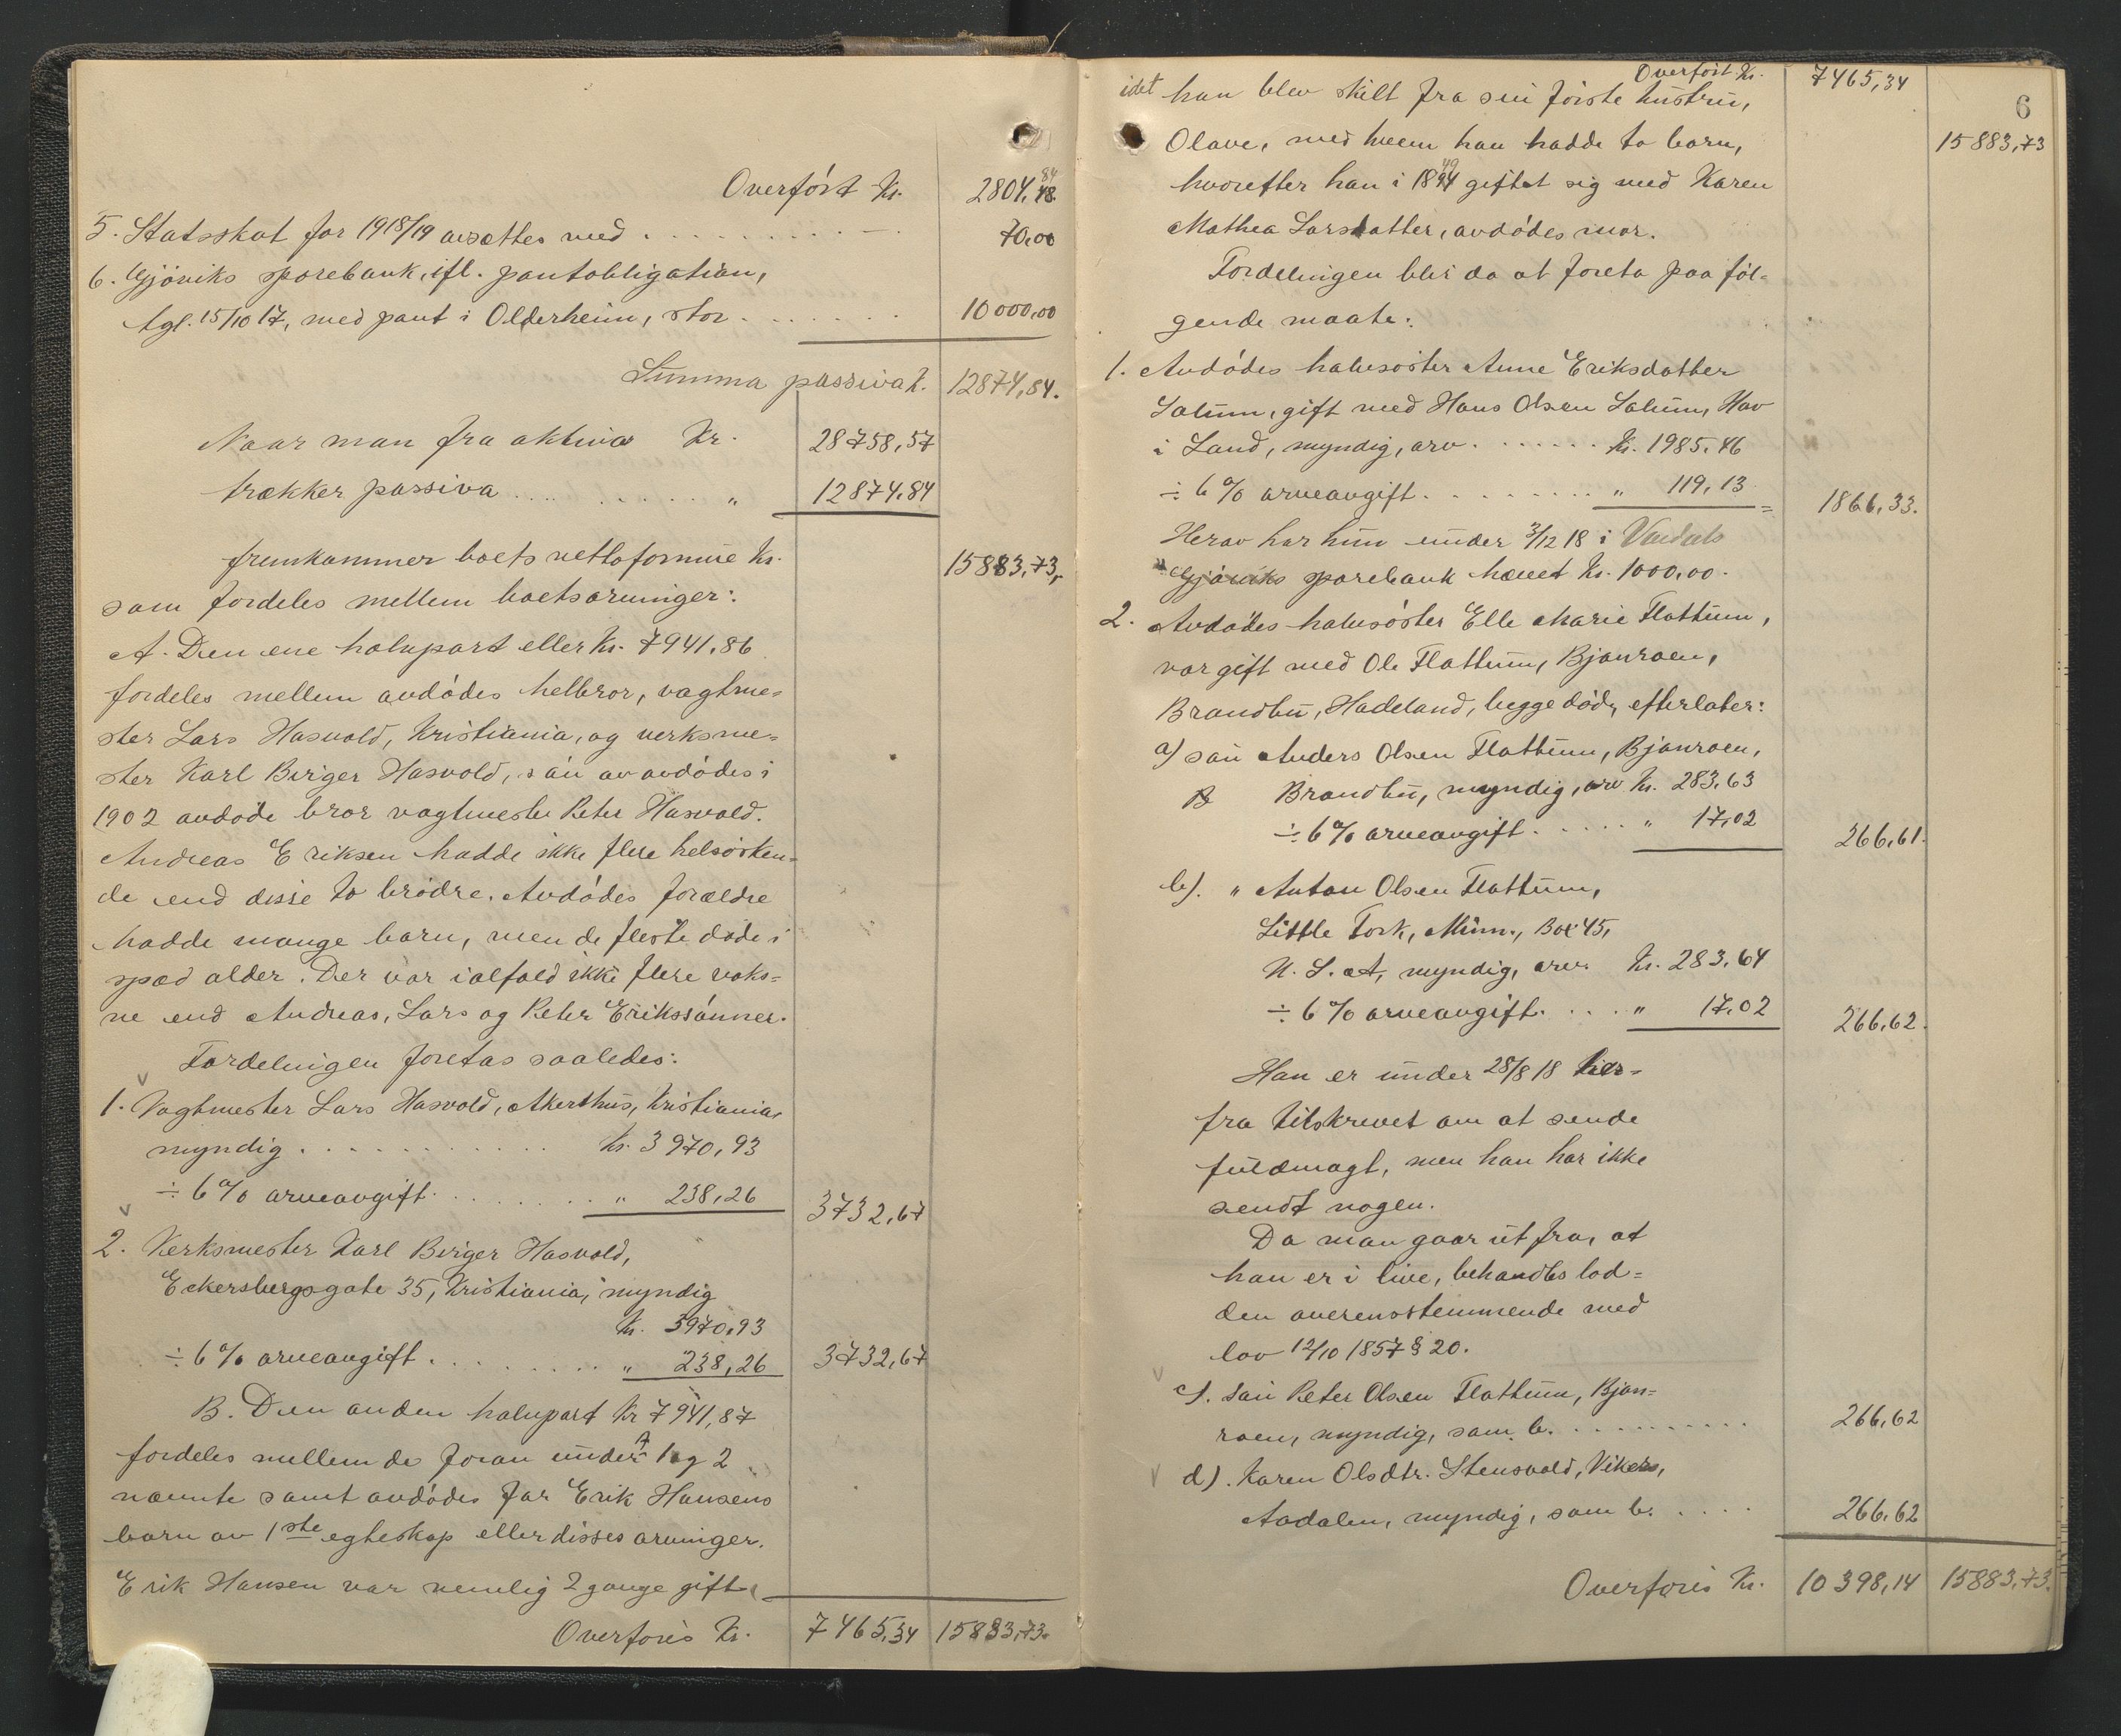 Overført Kr. 2804,84
5. Statsskat for 1918/19 avsættes med . . . . . . . . 70,00
6. Gjøviks sparebank, ifl. pantobligation,
tgl. 15/10 17, med pant i Olderheim, stor . . . . . . . 10000,00
Summa passiva kr. 12874,84.
Naar man fra aktiva Kr. 28758,57
trækker passiva . . . . . . . „ 12874,84
fremkommer boets nettoformue Kr. 15883,73,
som fordeles mellem boets arvinger:
A. Den ene halvpart eller Kr. 7941,86
fordeles mellem avdødes helbror, vagtme-
ster Lars Hasvold, Kristiania, og verksme-
ster Karl Birger Hasvold, søn av avdødes i
1902 avdøde bror vagtmester Peter Hasvold.
Andreas Eriksen hadde ikke flere helsøsken-
de end disse to brødre. Avdødes forældre
hadde mange barn, men de fleste døde i
spæd alder. Der var ialfald ikke flere voks-
ne end Andreas, Lars og Peter Erikssønner.
Fordelingen foretas saaledes:
1. Vagtmester Lars Hasvold, Akershus, Kristiania,
myndig . . . . . . . . . . . Kr. 3970,93
÷ 6% arveavgift . . . . . . . „ 238,26 3732,67
2. Verksmester Karl Birger Hasvold,
Eckersbergsgate 35, Kristiania, myndig
Kr. 3970,93
÷ 6% arveavgift . . . . . . . . „ 238,26 3732,67
B. Den anden halvpart Kr 7941,87
fordeles mellem de foran under A 1 og 2
nævnte samt avdødes far Erik Hansens
barn av 1ste egteskap eller disses arvinger.
Erik Hansen var nemlig 2 gange gift,
Overføres Kr. 7465,34 15883,73.
Overført Kr. 7465,34
6
idet han blev skilt fra sin første hustru,
Olave, med hvem han hadde to barn, 15883,73
hvorefter han i 1849 giftet sig med Karen
Mathea Larsdatter, avdødes mor.
Fordelingen blir da at foreta paa føl-
gende maate:
1. Avdødes halvsøster Anne Eriksdatter
Salum, gift med Hans Olsen Salum, Hov
i Land, myndig, arv . . . . . . Kr. 1985,46
÷ 6% arveavgift . . . . . . . . „ 119,13 = 1866,33.
Herav har hun under 3/12 18 i Vardals
Gjøviks sparebank hævet Kr. 1000,00.
2. Avdødes halvsøster Elle Marie Flattum,
var gift med Ole Flattum, Bjonroen,
Brandbu, Hadeland, begge døde, efterlater:
a) søn Anders Olsen Flattum, Bjonroen,
B Brandbu, myndig, arv Kr. 283,63
÷ 6% arveavgift . . . . . „ 17,02 266,61.
b). „ Anton Olsen Flattum,
Little Fork, Minn., Box 45,
U. S. A, myndig, arv. Kr. 283,64
÷ 6% arveavgift . . . . „ 17,02 266,62.
Han er under 28/8 18 her-
fra tilskrevet om at sende
fuldmagt, men han har ikke
sendt nogen.
Da man gaar ut fra, at
han er i live, behandles lod-
den overensstemmende med
lov 12/10 1857 § 20.
c). søn Peter Olsen Flattum, Bjon-
roen, myndig, som b. . . . . . . . . . 266,62
d). Karen Olsdtr. Stensvold, Vikers,
Aadalen, myndig, som b. . . . . 266,62
Overføres Kr. 10398,14 15883,73.